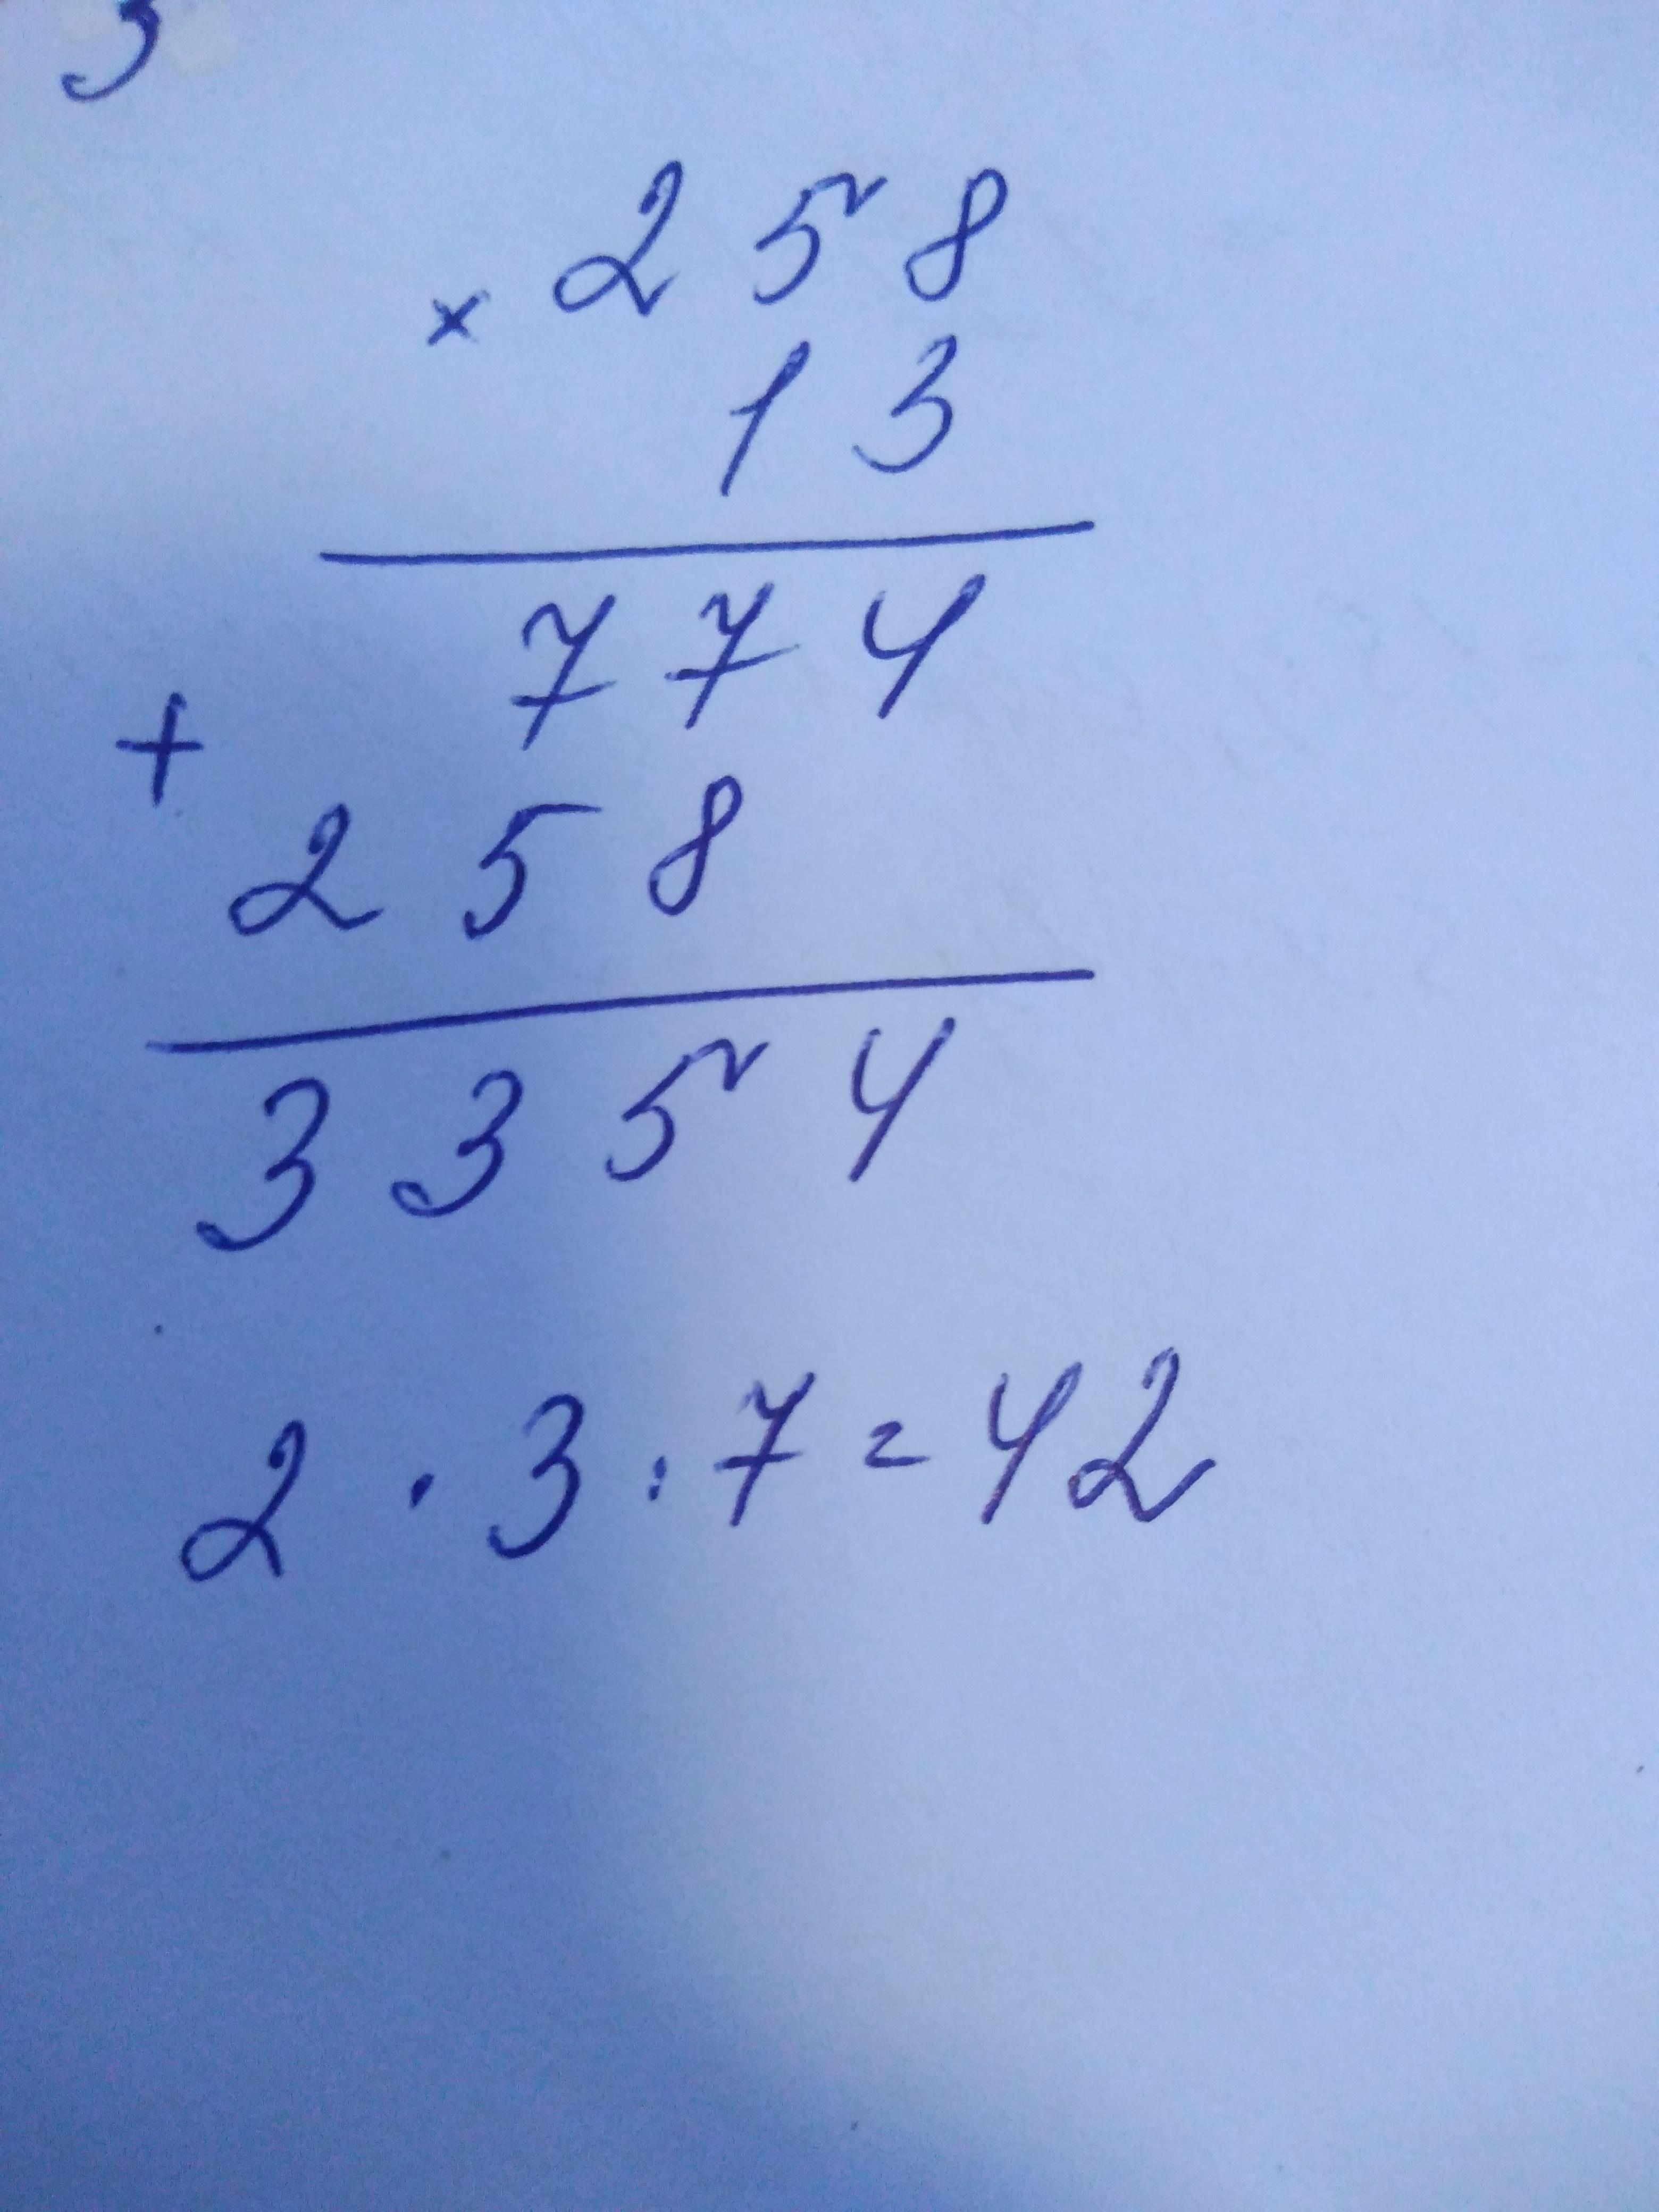 3
× 258
13
774
+
258
3354
2 · 3 · 7 = 42